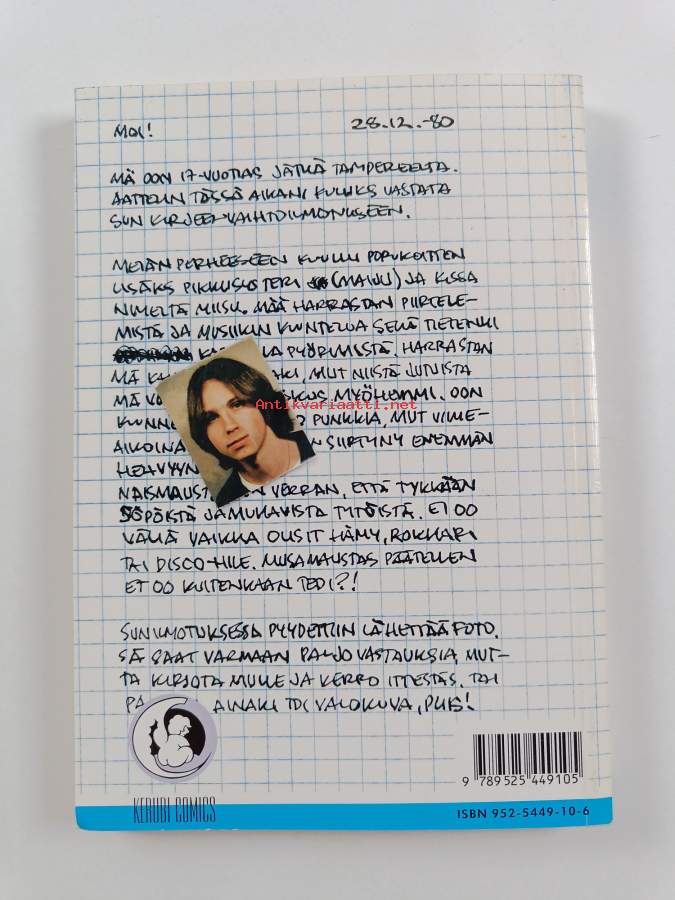 MOI! 28.12.-80
MÄ OON 17-VUOTIAS JÄTKÄ TAMPEREELTA.
AATTELIN TÄSSÄ AIKANI KULUKS VASTATA
SUN KIRJEENVAIHTOILMOTUKSEEN.
MEIÄN PERHEESEEN KUULUU POPUKOITTEN
LISÄKS PIKKUSISTERI (MAIJU) JA KISSA
NIMELTÄ MIISU. MÄÄ HARRASTAN PIIRTELE-
MISTÄ JA MUSIIKIN KUUNTELUA SEKÄ TIETENKI
PYÖRIMISTÄ. HARRASTAN
MÄ MUT NIISTÄ JUTUISTA
MÄ MYÖHEMMI. OON
KUUNNE PUNKKIA, MUT VIIME-
AIKOINA SIIRTYNY ENEMMÄN
HEAVYYN
NAISMAUST VERRAN, ETTÄ TYKKÄÄN
SÖPÖISTÄ JA MUKAVISTA TYTÖISTÄ. EI OO
VÄLIÄ VAIKKA OLISIT HÄMY, ROKKARI
TAI DISCO-HILE. MUSAMAUSTAS PÄÄTELLEN
ET OO KUITENKAAN TEDI?!
SUN ILMOTUKSESSA PYYDETTIIN LÄHETTÄÄ FOTO.
SÄ SAAT VARMAAN PALJO VASTAUKSIA, MUT-
TA KIRJOTA MULLE JA KERRO ITTESTÄS. TAI
PA AINAKI TOI VALOKUVA, PLIIS!
Antikvariaatti.net
KERUBI COMICS
9 789525 449105
ISBN 952-5449-10-6